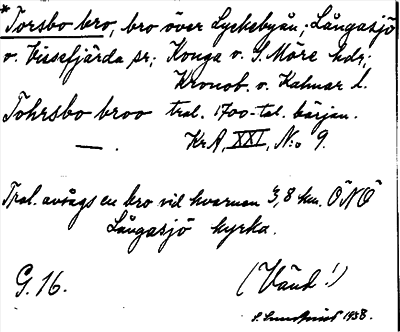 *Torsbo bro, bro över Lyckebyån; Långasjö
o. Vissefjärda sr; Konga o. S. Möre hdr;
Kronob. o. Kalmar l.
Tohrsbo broo tral. 1700-tal. början.
— . KrA, XXI, N:o 9.
Tral. avsågs en bro vil kvarnen 3,8 km. ÖNÖ
Långasjö kyrka.
G. 16. (Vänd!)
1938.